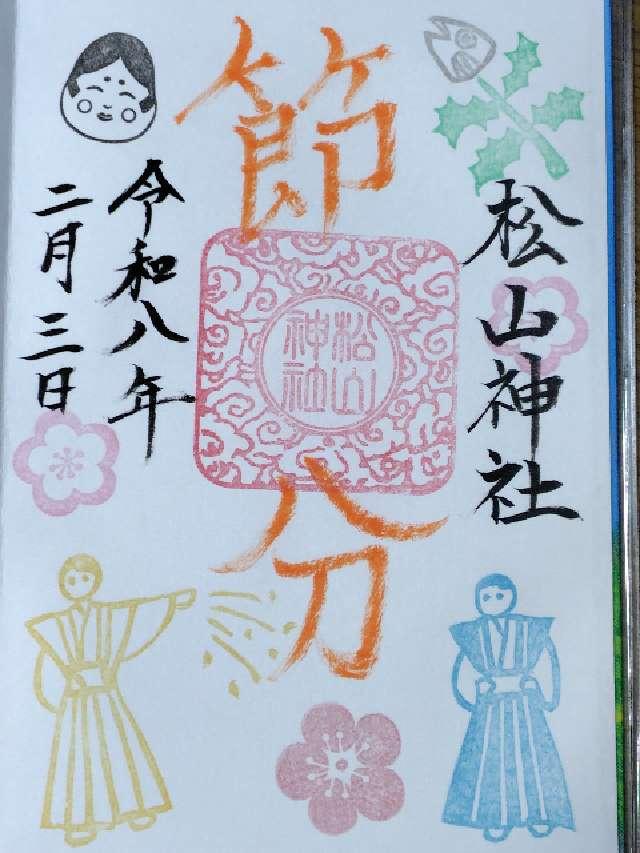 松山神社
節分
松山
神社
令和八年
二月三日